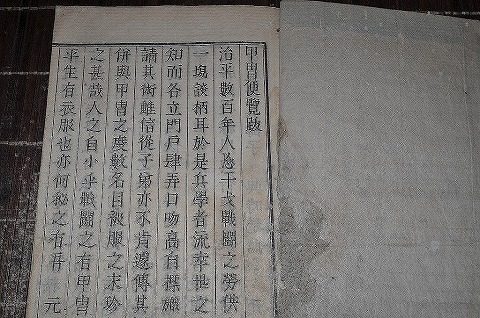 甲冑便覽跋
治平數百年人忽干戈戰鬪之勞供
一場談柄耳於是兵學者流幸世之
知而各立門戶肆弄口吻高自標
請其術雖信從子弟亦不肯遽傳其
併與甲冑之度數名目被服之末珍
之甚哉人之自小乎戰鬪之有甲冑
平生有衣服也亦何秘之有吾 元